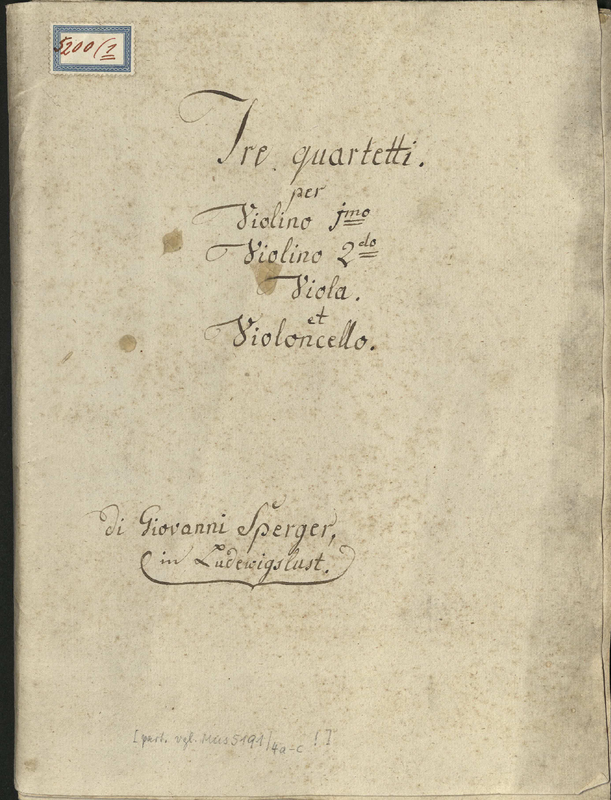 5200/1
Tre quartetti.
per
Violino jmo
Violino 2do
Viola.
et
Violoncello.
di Giovanni Sperger,
in Ludewigslust.
[part. vgl. Mus 5191/4a-c !]